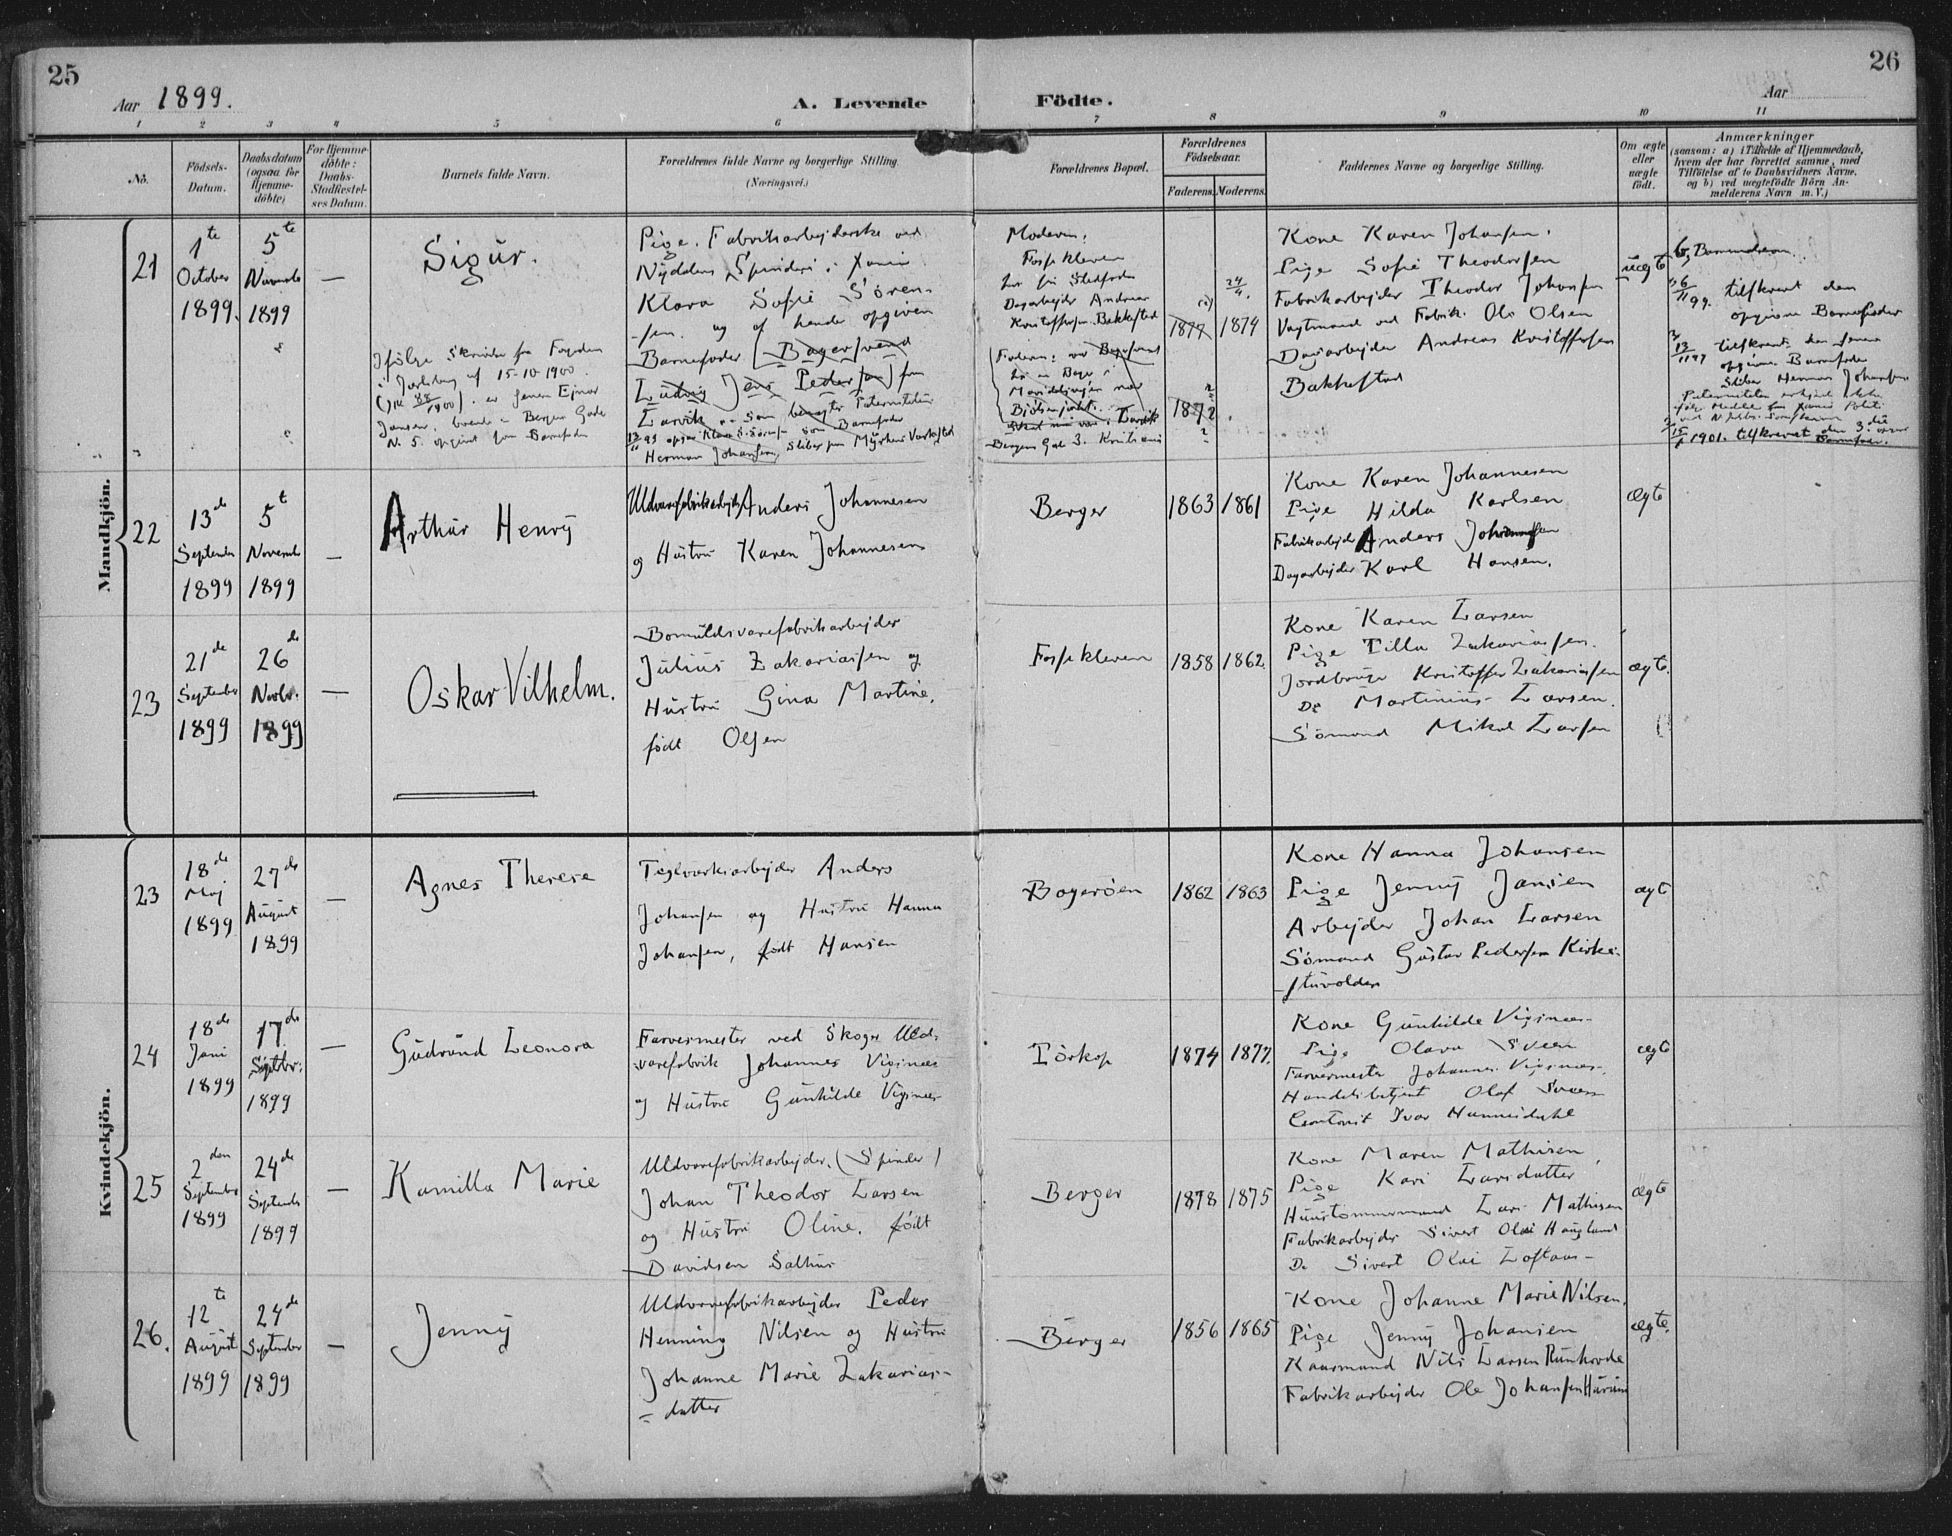 25
26
Aar 1899.
A. Levende
Födte.
Aar
1 2 3 4 5 6 7 8 9 10 11
No.
Födsels-
Datum.
Daabsdatum
(ogsaa for
Hjemme-
döbte)
For Hjemme-
döbte:
Daabs-
Stadfæstel-
ses Datum.
Barnets fulde Navn.
Forældrenes fulde Navne og borgerlige Stilling.
(Næringsvei.)
Forældrenes Bopæl.
Forældrenes
Födselsaar.
Faderens. Moderens.
Faddernes Navne og borgerlige Stilling.
Om ægte
eller
uægte
født.
Anmærkninger
(saasom: a) i Tilfælde af Hjemmedaab,
hvem der har forrettet samme, med
Tilföielse af to Daabsvidners Navne,
og b) ved uægtefödte Börn An-
melderens Navn m. V.)
Mandkjön.
21
1te
October
1899.
5te
Novemb
1899
—
Sigur.
Ifölge Skrivelse fra Fogden
i Jarlsberg af 15-10-1900
er Einar
Jansen, boende i Bergen Gade
N. 5. opgivet som Barnefader
Pige, Fabrikarbejderske ved
Nydalens Spinderi i Xania
Klara Sofie Sören-
sen. og af hende opgiven
Barnefader [Bagersvend
Ludvig Jens Pedersen] fra
Larvik
Herman Johansen, Sliber paa Myrhens Verksted
Moderen:
Fossekleven
Dagarbejder Andreas
Kristoffersen Bakkestad
Faderen:
Bergens Gad 3. Kristiania
1877
1872
24/4.
1874
Kone Karen Johansen.
Pige Sofie Theodorsen
Fabrikarbejder Theodor Johansen
Vagtmand ved Fabrik. Ole Olsen
Dagarbejder Andreas Kristoffersen
Bakkestad
uægte
b, Barnemoderen
16/11 99. tilskrevet den
opgivne Barnefader
13/11 99 tilskrevet den
opgivne Barnefader
Sliber Herman Johansen
15/1 1901. tilskrevet den 3die
Barnefader.
22
13de
September
1899
5t
Novemb
1899
—
Arthur Henry
Uldvarefabrikarbejder Anders Johannesen
og Hustru Karen Johannesen
Berger
1863
1861
Kone Karen Johannesen
Pige Hilda Karlsen
Fabrikarbejder Anders Johannesen
Dagarbejder Karl Hansen.
Ægte
23
21de
September
1899
26de
Novbr.
1899
—
Oskar Vilhelm.
Bomuldsvarefabrikarbejder
Julius Zakariassen og
Hustru Gina Martine,
født Olsen
Fossekleven
1858
1862.
Kone Karen Larsen
Pige Tilla Zakariassen.
Jordbruger Kristoffer Zakariassen
Do Martinius Larsen.
Sömand Mikal Larsen
ægte.
Kvindekjön.
23
18de
Maj
1899
27de
August
1899
—
Agnes Therese
Teglverksarbejder Anders
Johansen og Hustru Hanna
Johansen, født Hansen
Bogerøen
1862
1863
Kone Hanna Johansen
Pige Jenny Jansen
Arbejder Johan Larsen
Sömand Gustav Pedersen Kirke-
stuvolden
ægte
24
18de
Juni
1899
17de
Septbr.
1899
—
Gudrund Leonora
Farvermester ved Skoger Uld-
varefabrik Johannes Vigsnæs
og Hustru Gunhilde Vigsnæs
Törkop
1874
1877.
Kone Gunhilde Vigsnæs-
Pige Olava Sveen
Farvermester Johannes Vigsnæs-
Handelsbetjent Olaf Sveen
Contorist Ivar Hannisdahl
ægte
25
2den
September
1899
24de
Septemb
1899
—
Kamilla Marie
Uldvarefabrikarbejder. (Spinder)
Johan Theodor Larsen
og Hustru Oline, født
Davidsen Salhus
Berger
1878
1875
Kone Maren Mathisen,
Pige Kari Larsdatter
Huustömmermand Lars Mathisen
Fabrikarbejder Sivert Olai Haugland
Do Sivert Olai Loftaas-
Ægte
26.
12te
August
1899
24de
September
1899
—
Jenny
Uldvarefabrikarbejder Peder
Henning Nilsen og Hustru
Johanne Marie Zakarias-
datter
Berger
1856
1865
Kone Johanne Marie Nilsen.
Pige Jenny Johansen
Kaarmand Nils Larsen Runhovde
Fabrikarbejder Ole Johansen Haraun
Ægte.